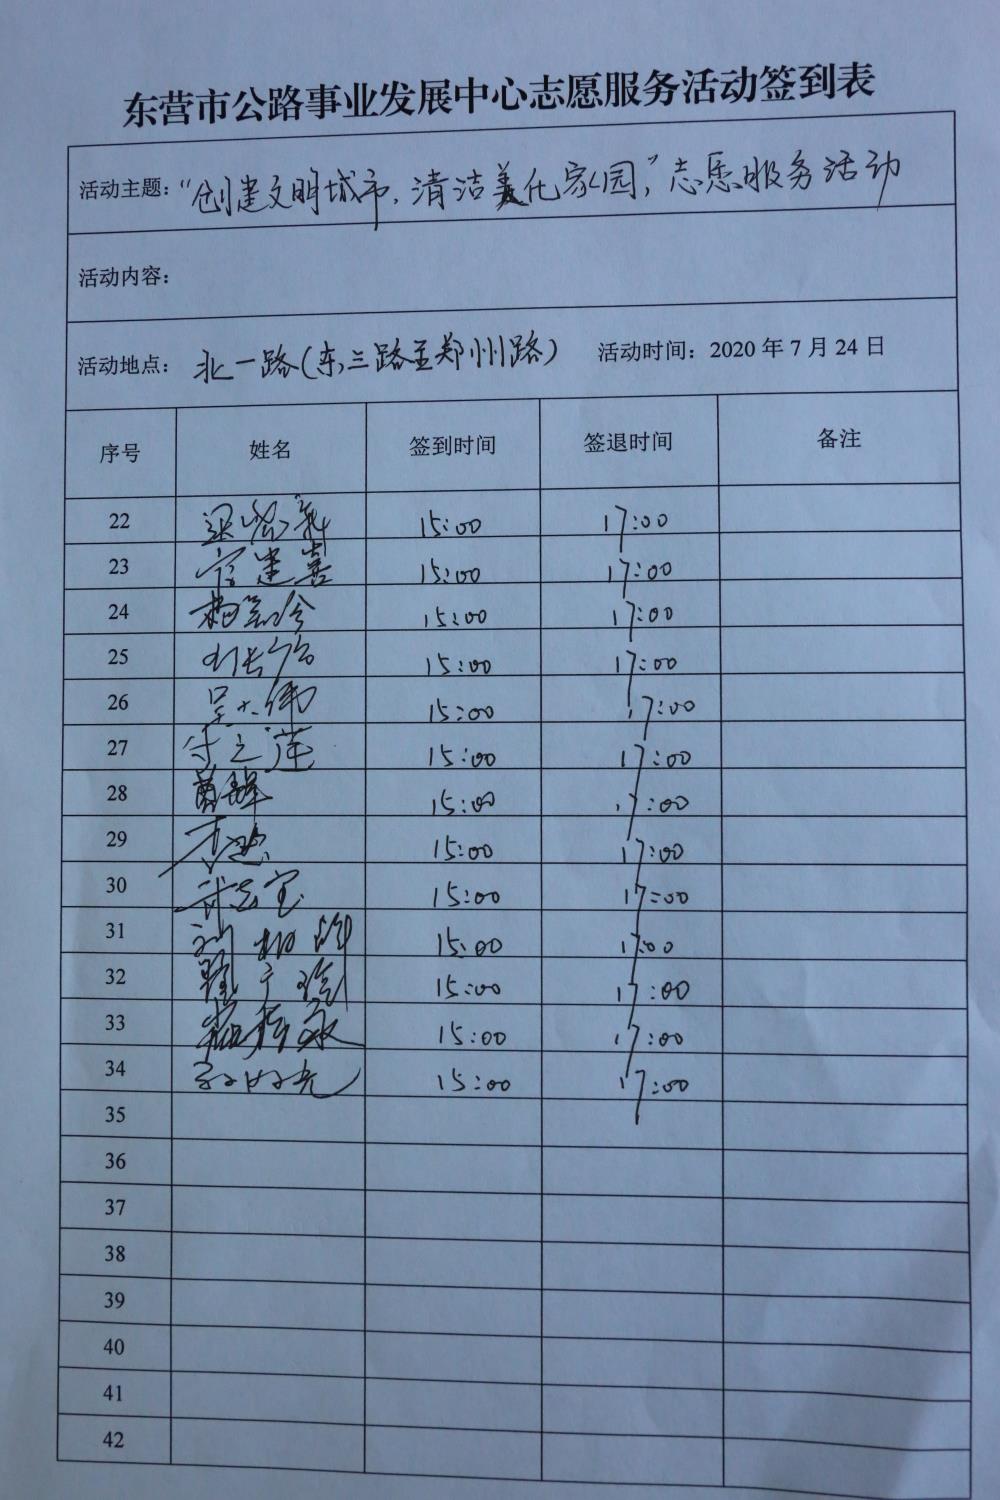 东营市公路事业发展中心志愿服务活动签到表
活动主题：“创建文明城市，清洁美化家园，”志愿服务活动
活动内容：
活动地点：北一路（东三路至郑州路） 活动时间：2020 年 7 月 24 日
序号 姓名 签到时间 签退时间 备注
22 15:00 17:00
23 建喜 15:00 17:00
24 15:00 17:00
25 15:00 17:00
26 15:00 17:00
27 15:00 17:00
28 15:00 17:00
29 15:00 17:00
30 15:00 17:00
31 15:00 17:00
32 15:00 17:00
33 15:00 17:00
34 15:00 17:00
35
36
37
38
39
40
41
42